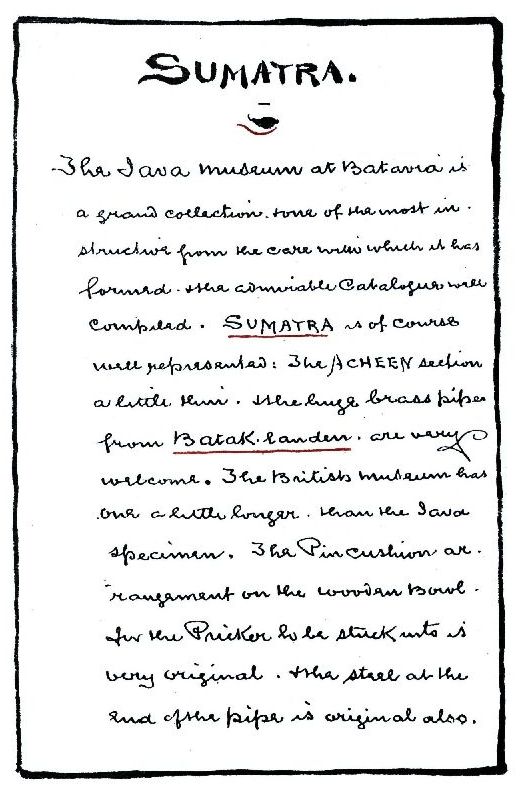 SUMATRA.
The Java museum at Batavia is
a grand collection. & one of the most in.
structive from the care with which it has
formed. & the admirable Catalogue well
compiled. SUMATRA is of course
well represented: The ACHEEN section
a little thin. & the huge brass pipes
from Batak. landen. are very
welcome. The British museum has
one a little longer. than the Java
specimen. The Pincushion ar.
rangement on the wooden Bowl.
for the Pricker to be stuck into is
very original. & the steel at the
end of the pipe is original also.